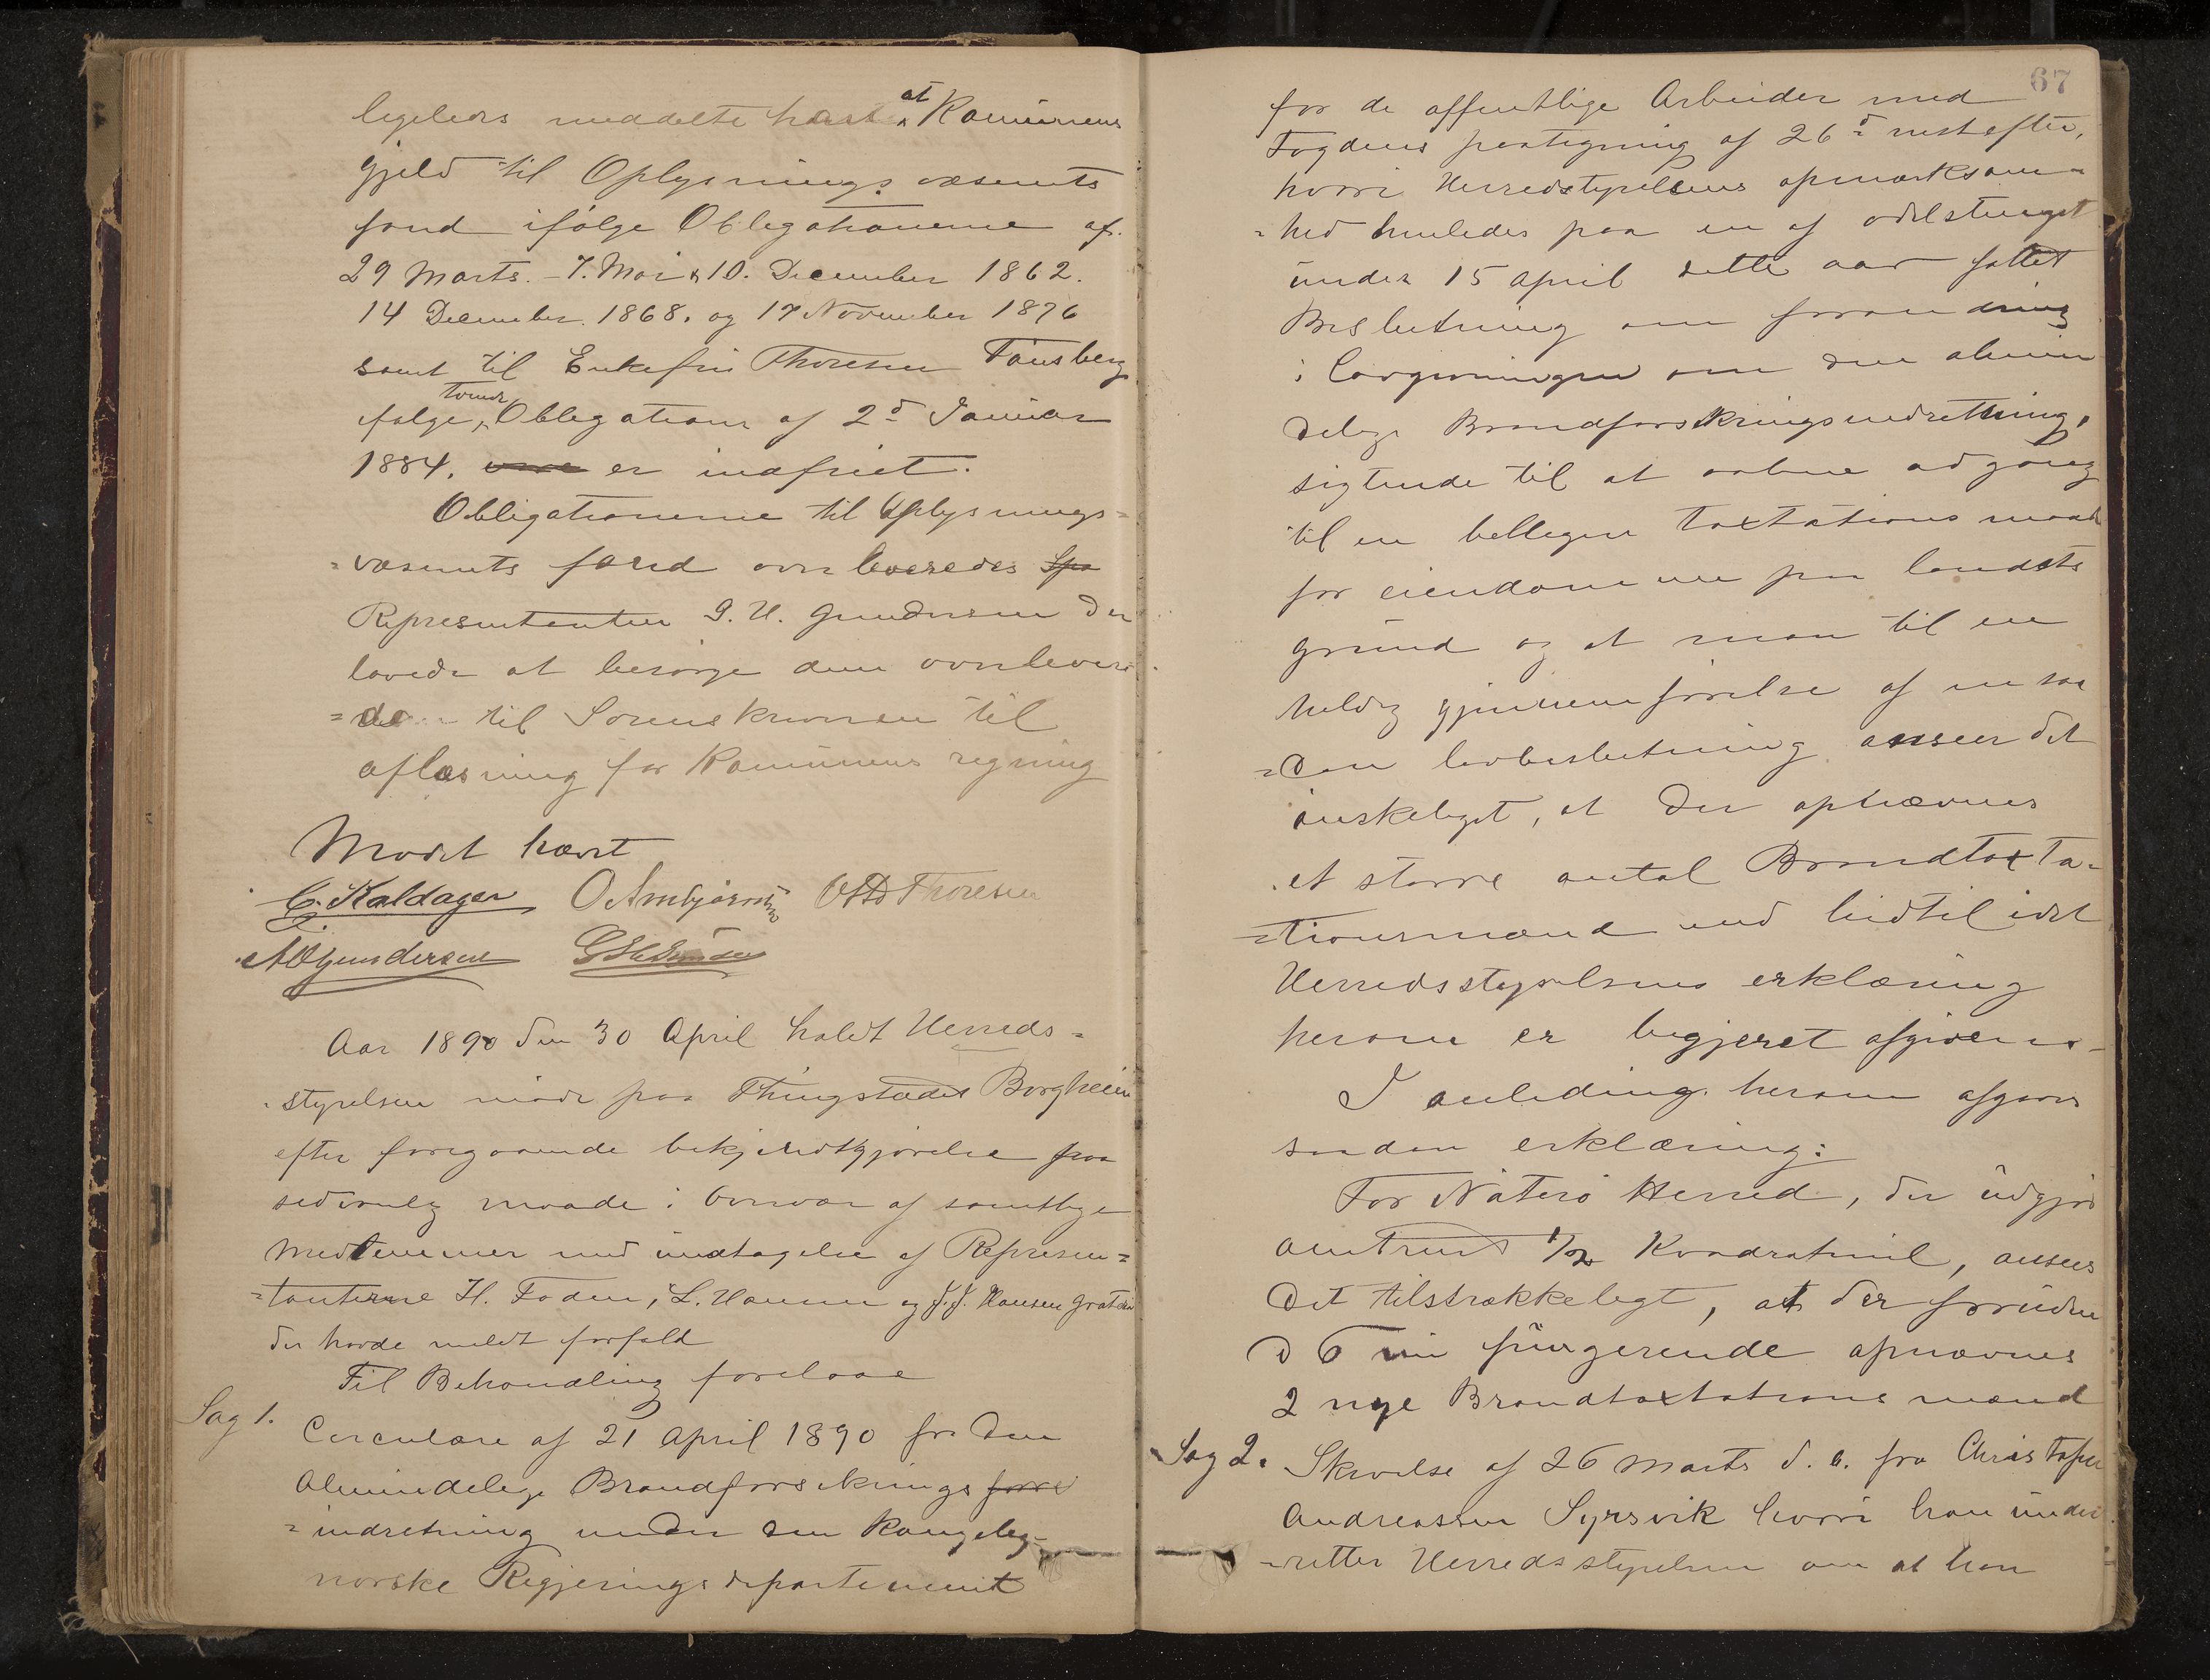 ligeledes meddelte han at Komunens
gjeld til Oplysningsvæsenets
fond ifølge Obligationerne af
29 Marts. - 7. Mai & 10. December 1862.
14 December 1868. og 17 November 1876
samt til Enkefru Thoresen Tønsberg
ifølge Obligation af 2d Januar
1884, er indfriet.
Obligationerne til Oplysnings=
=væsenets fond overleveredes
Representanten Gundersen der
lovede at besørge dem overlevere
til Sorenskriveren til
aflæsning for Komunens regning
Mødet hævet
C. Kaldager O Arnbjørnsen Otto Thoresen
Gundersen
Aar 1890 den 30 April holdt Herreds=
styrelsen møde paa Thingstedet Borgheim
efter foregaaende bekjendtgjørelse paa
sedvanlig maade i Overvær af samtlige
Medlemmer med undtagelse af Represen=
=tanterne H. Foden, L. Hansen og J. J. Hansen
der havde meldt forfald
Til Behandling forelaae
Sag 1.
Circulære af 21 April 1890 fra den
Almindelige Brandforsikrings
=indretning under den Kongelig
norske Regjerings departement
67
for de offentlige Arbeider med
Fogdens paategning af 26d næstefter,
hvori Herredstyrelsens opmærksom=
=hed henledes paa en af odelstinget
under 15 April dette aar fattet
Beslutning om forandring
i Lovgivningen om den almin
delige Brandforsikringsindretning,
sigtende til at aabne adgang
til en billigere Taxtations maade
for eiendommene paa landets
grund og at man til en
heldig gjennemførelse af en saa
=dan lovbeslutning anseer det
ønskeligt, at der opnævnes
et større antal Brandtaxta=
=tionsmænd end hidtil idet
Herredsstyrelsens erklæring
herom er begjeret afgiven.
I anledning herom afgaves
saadan erklæring:
For Nøterø Herred, der udgjør
omtrent 1/2 Kvadratmil, ansees
det tilstrækkeligt, at der foruden
d 6 nu fungerende opnævnes
2 nye Brandtaxtations mænd
Sag 2.
Skrivelse af 26 Marts d. a. fra Christofer
Andreassen Syrsvik hvori han under
=retter Herredsstyrelsen om at han